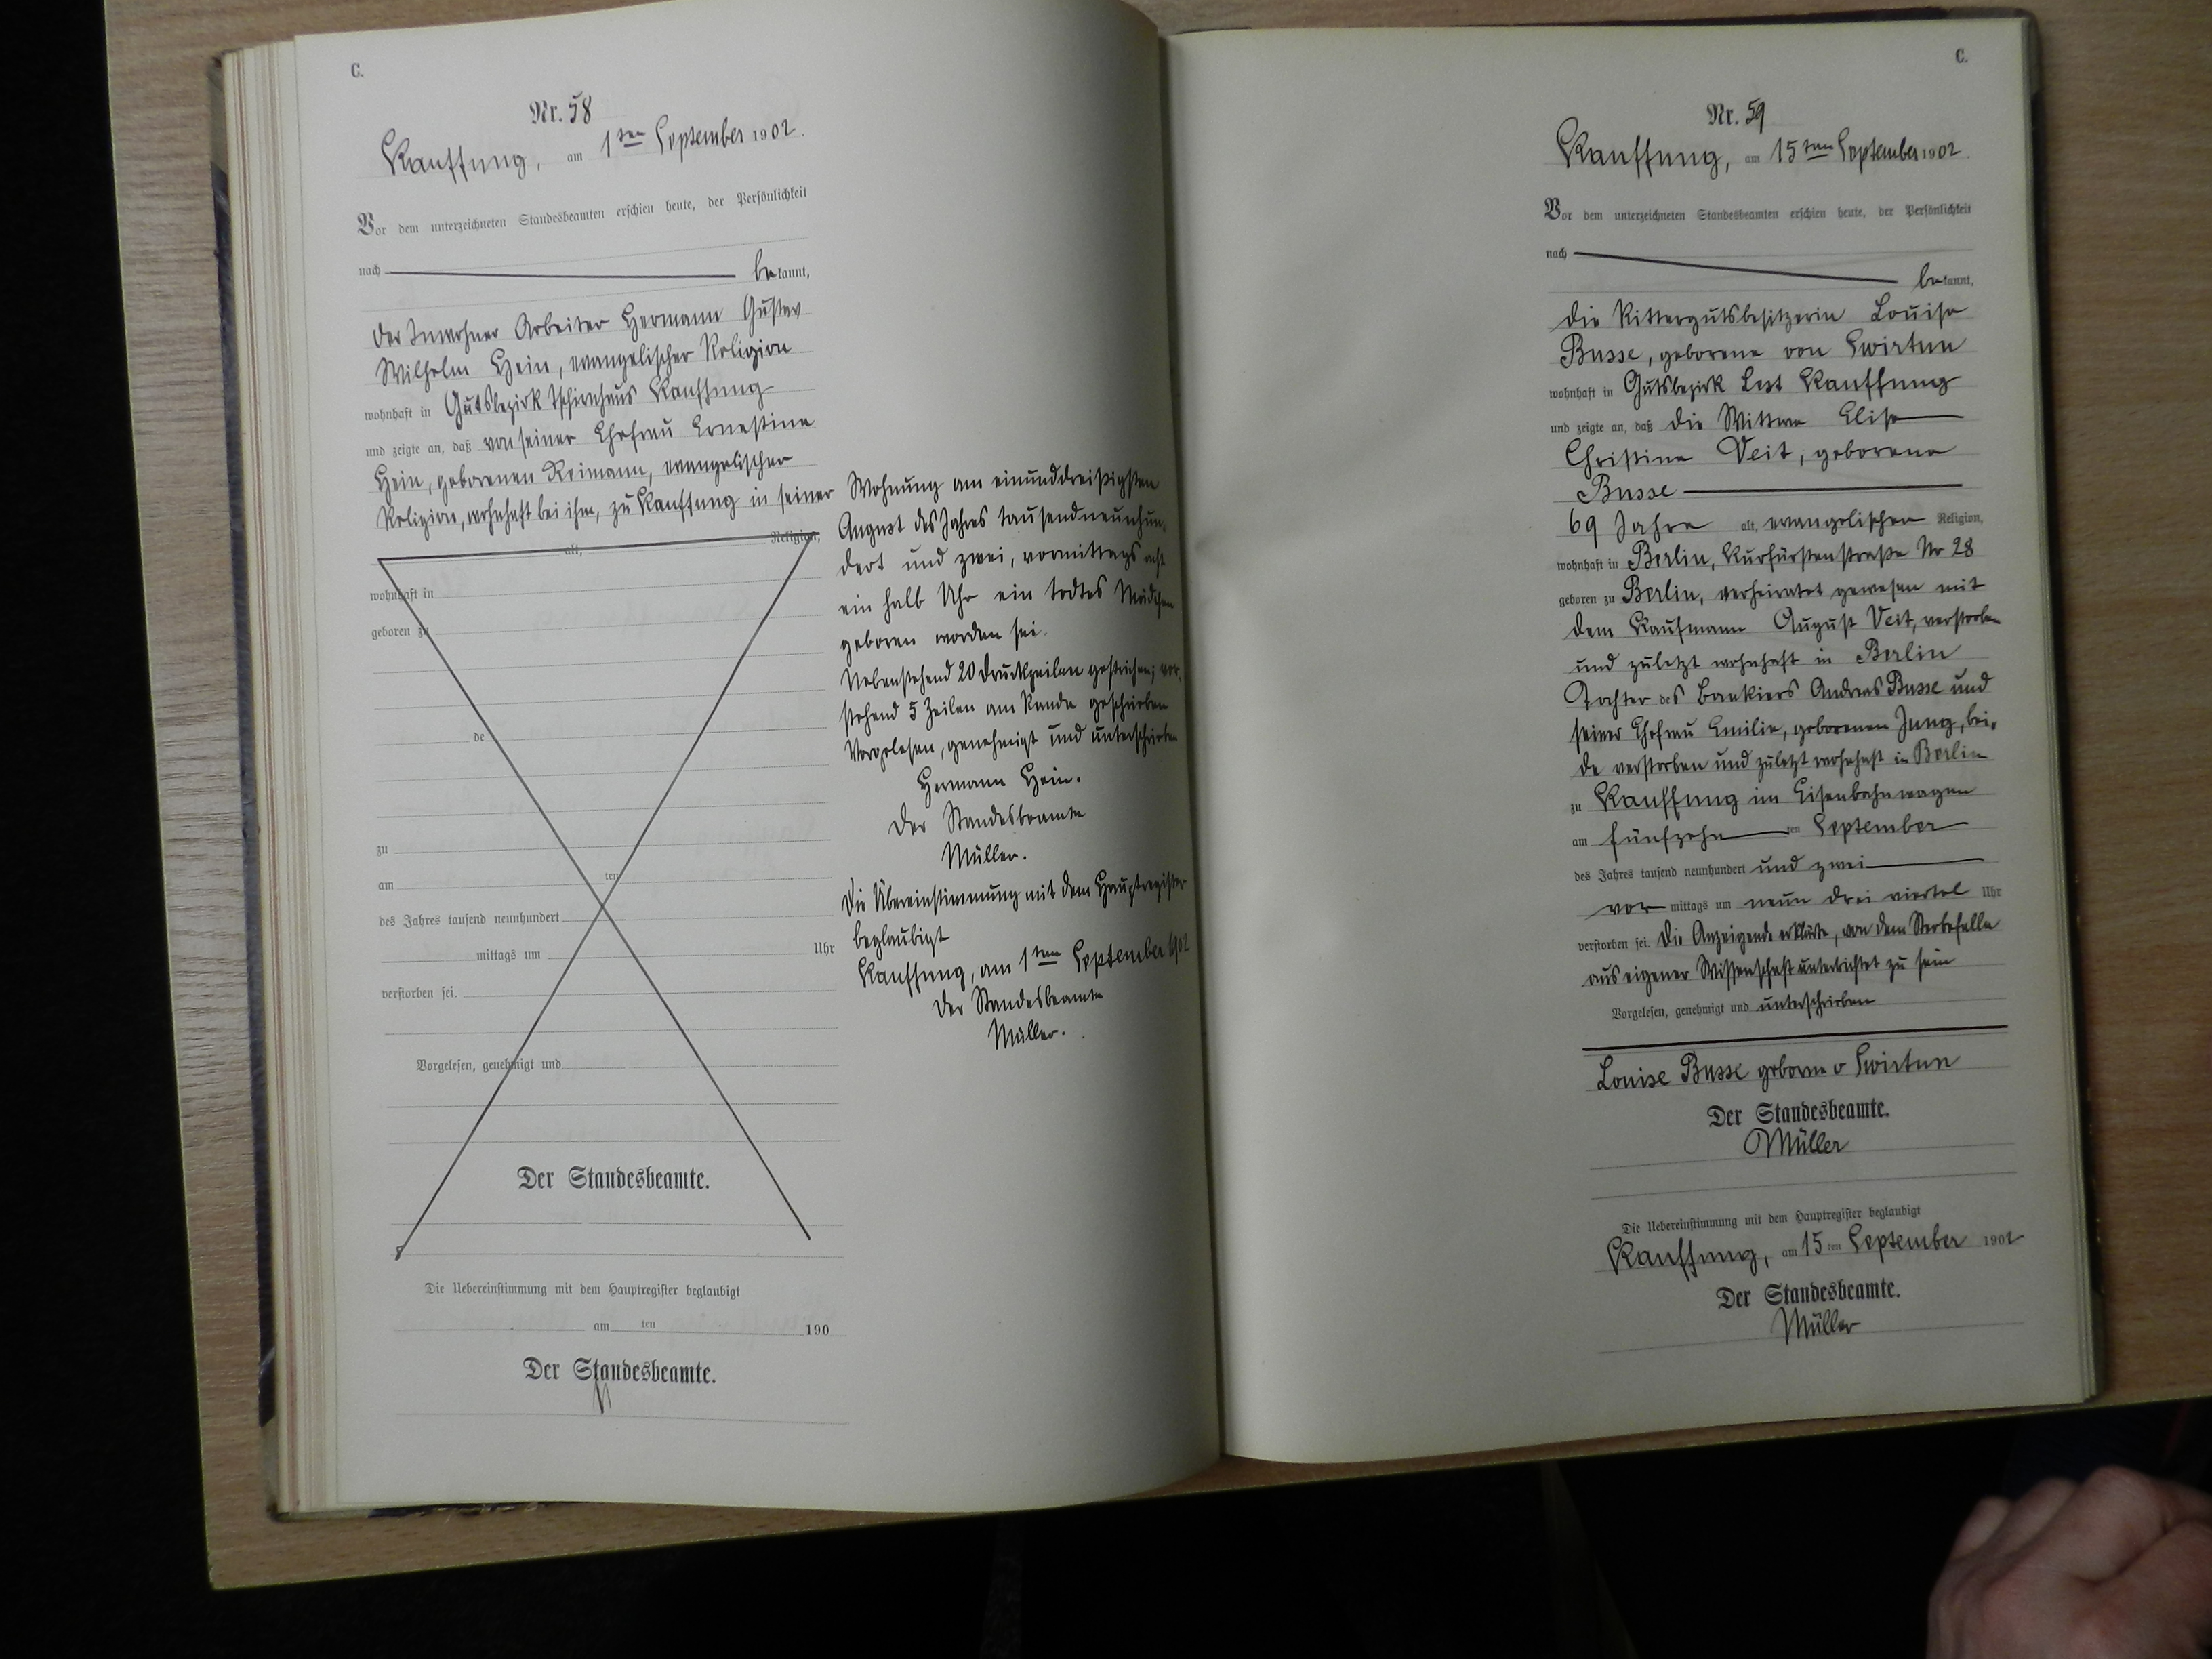 C.
Nr. 58
Kauffung, am 1ten September 1902.
Vor dem unterzeichneten Standesbeamten erschien heute, der Persönlichkeit
nach bekannt,
der Inwohner Arbeiter Hermann Gustav
Wilhelm Hein, evangelischer Religion
wohnhaft in Gutsbezirk Tschirnhaus Kauffung
und zeigte an, daß von seiner Ehefrau Ernestine
Hein, geborenen Reimann, evangelischer
Religion, wohnhaft bei ihm, zu Kauffung in seiner
alt, Religion,
wohnhaft in
geboren zu
de
zu
am ten
des Jahres tausend neunhundert
mittags um Uhr
verstorben sei.
Vorgelesen, genehmigt und
Der Standesbeamte.
Die Uebereinstimmung mit dem Hauptregister beglaubigt
am ten 190
Der Standesbeamte.
Wohnung am einunddreißigsten
August des Jahres tausendneunhun-
dert und zwei, vormittags acht
ein halb Uhr ein todtes Mädchen
geboren worden sei.
Nebenstehend 20 Druckzeilen gestrichen; vor-
stehend 5 Zeilen am Rande geschrieben
Vorgelesen, genehmigt und unterschrieben
Hermann Hein.
Der Standesbeamte
Müller.
Die Übereinstimmung mit dem Hauptregister
beglaubigt
Kauffung, am 1ten September 1902
Der Standesbeamte
Müller.
C.
Nr. 59
Kauffung, am 15ten September 1902.
Vor dem unterzeichneten Standesbeamten erschien heute, der Persönlichkeit
nach bekannt,
die Rittergutsbesitzerin Louise
Busse, geborene von
wohnhaft in Gutsbezirk Lest Kauffung
und zeigte an, daß die Wittwe Elise
Christine Veit, geborene
Busse
69 Jahre alt, evangelischer Religion,
wohnhaft in Berlin, Kurfürstenstraße Nr 28
geboren zu Berlin, verheiratet gewesen mit
dem Kaufmann August Veit, verstorben
und zuletzt wohnhaft in Berlin
Tochter des Bankiers Andreas Busse und
seiner Ehefrau Emilie, geborenen Jung, bei-
de verstorben und zuletzt wohnhaft in Berlin
zu Kauffung im Eisenbahnwagen
am fünfzehn ten September
des Jahres tausend neunhundert und zwei
vor mittags um neun drei viertel Uhr
verstorben sei. Die Anzeigende erklärte, von dem Sterbefalle
aus eigener Wissenschaft unterrichtet zu sein
Vorgelesen, genehmigt und unterschrieben
Louise Busse geborne v
Der Standesbeamte.
Müller
Die Uebereinstimmung mit dem Hauptregister beglaubigt
Kauffung, am 15 ten September 1902
Der Standesbeamte.
Müller